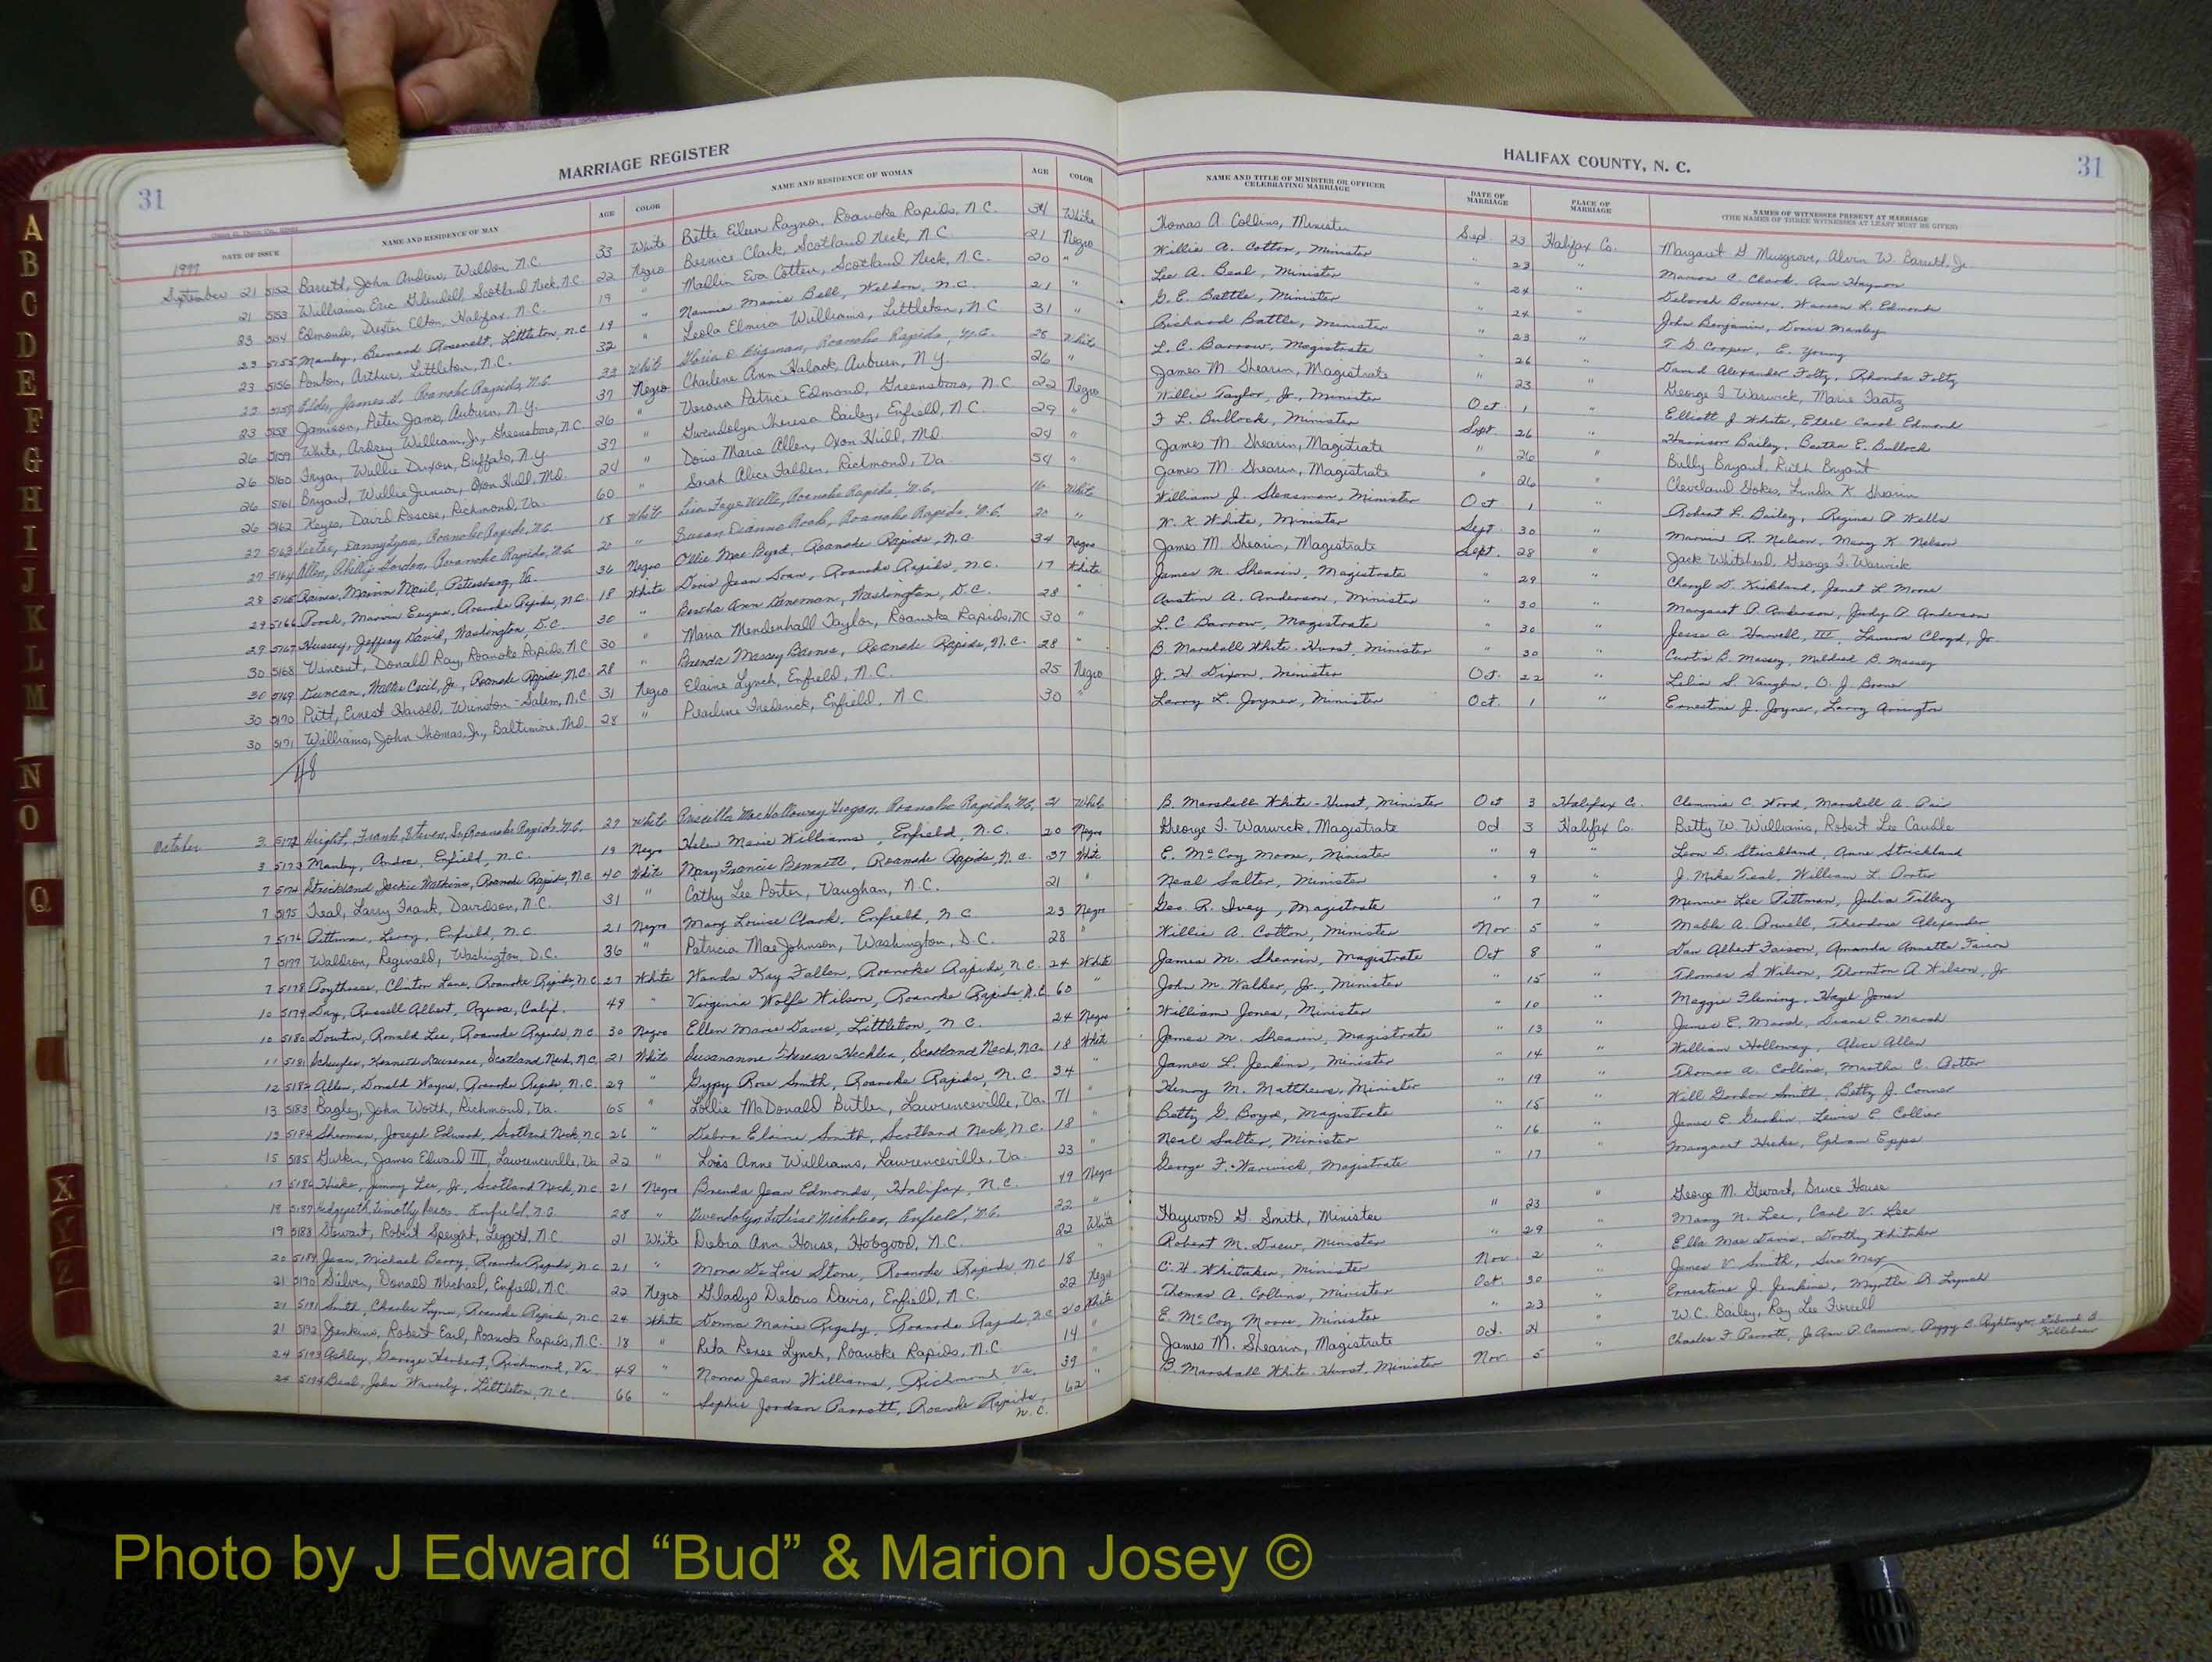 31
MARRIAGE REGISTER
HALIFAX COUNTY, N. C.
31
DATE OF ISSUE NAME AND RESIDENCE OF MAN AGE COLOR NAME AND RESIDENCE OF WOMAN AGE COLOR NAME AND TITLE OF MINISTER OR OFFICER CELEBRATING MARRIAGE DATE OF MARRIAGE PLACE OF MARRIAGE NAMES OF WITNESSES PRESENT AT MARRIAGE (THE NAMES OF THREE WITNESSES AT LEAST MUST BE GIVEN)
1977
September 21 5152 Barrett, John Andrew, Weldon, N.C. 33 White Bette Eileen Raynor, Roanoke Rapids, N.C. 34 White Thomas A. Collins, Minister Sept. 23 Halifax Co. Margaret G. Musgrove, Alvin W. Barrett, Jr
21 5153 Williams, Eric Glendell Scotland Neck, N.C. 22 Negro Bernice Clark, Scotland Neck, N.C. 21 Negro Willie A. Cotton, Minister " 23 "
23 5154 Edmonds, Dexter Elton, Halifax, N.C. 19 " Mallin Eva Cotten, Scotland Neck, N.C. 20 " Lee A. Beal, Minister " 24 Deborah Bowers, Warren L. Edmonds
23 5155 Manley, Bernard Roosevelt, Littleton, N.C. 19 " Nannie Marie Bell, Weldon, N.C. 21 " G. E. Battle, Minister " 24 " John Benjamin, Doris Manley
23 5156 Ponton, Arthur, Littleton, N.C. 32 " Leola Elmira Williams, Littleton, N.C 31 " Richard Battle, Minister " 23 " T. G. Cooper, E. Young
23 5157 James Roanoke Rapids, N.C. White Roanoke Rapids, N.C. 28 White L. C. Barrow, Magistrate " 26 David Alexander Foltz, Rhonda Foltz
23 5158 Jamison, Peter James, Auburn, N.Y. 37 Charlene Ann Halack, Auburn, N.Y 26 " James M. Shearin, Magistrate " 23 George F. Warwick, Marie Faatz
26 5159 White, Ardrey William, Jr., Greensboro, N.C 26 Negro Verona Patrice Edmond, Greensboro, N.C 22 Negro Willie Taylor, Jr., Minister Oct. 1 " Elliott J. White, Ethel Carol Edmond
26 5160 Fryar, Willie Dixon, Buffalo, N.Y. 37 " Gwendolyn Theresa Bailey, Enfield, N.C. 29 " F. L. Bullock, Minister Sept. 26 Harrison Bailey, Bertha E. Bullock
26 5161 Bryant, Willie Junior, Oxon Hill, Md. 24 " Doris Marie Allen, Oxon Hill, Md. 24 " James M. Shearin, Magistrate " 26 Billy Bryant, Ruth Bryant
26 5162 Keyes, David Roscoe, Richmond, Va. 60 " Sarah Alice Falden, Richmond, Va 54 " James M. Shearin, Magistrate " 26 Cleveland Stokes, Linda K. Shearin
27 5163 Keeter, Danny Lynn, Roanoke Rapids, N.C. 18 White Lisa Faye Wells, Roanoke Rapids, N.C. 16 White William J. Stessman, Minister Oct 1 " Robert L. Bailey, Regina P. Wells
27 5164 Allen, Phillip Gordon, Roanoke Rapids, N.C. 20 " Susan Dianne Rook, Roanoke Rapids, N.C. 20 " W. K. White, Minister Sept. 30 " Marvin R. Nelson, Mary K. Nelson
28 5165 Raines, Marvin Macil, Petersburg, Va. 36 Negro Ollie Mae Byrd, Roanoke Rapids, N.C. 34 Negro James M. Shearin, Magistrate Sept. 28 " Jack Whitehead, George F. Warwick
29 5166 Porch, Marvin Eugene, Roanoke Rapids, N.C. 18 White Doris Jean Doan, Roanoke Rapids, N.C. 17 White James M. Shearin, Magistrate " 29 Cheryl D. Kirkland, Janet L. Moore
29 5167 Hussey, Jeffrey David, Washington, D.C. 30 " Bertha Ann Laneman, Washington, D.C. 28 " Austin A. Anderson, Minister " 30 " Margaret P. Anderson, Judy P. Anderson
30 5168 Vincent, Donald Ray, Roanoke Rapids, N.C 30 " Maria Mendenhall Taylor, Roanoke Rapids, N.C 30 L. C. Barrow, Magistrate " 30 " Jesse A. Harvell, III, Lawson Cloyd, Jr.
30 5169 Duncan, Wallie Cecil, Jr., Roanoke Rapids, N.C. 28 " Brenda Massey Barnes, Roanoke Rapids, N.C. 28 " B. Marshall White-Hurst, Minister " 30 " Curtis B. Massey, Mildred B. Massey
30 5170 Pitt, Ernest Harold, Winston-Salem, N.C 31 Negro Elaine Lynch, Enfield, N.C. 25 Negro J. H. Dixon, Minister Oct. 22 " Lelia S. Vaughn, O. J. Boone
30 5171 Williams, John Thomas, Jr., Baltimore, Md. 28 " Pearline Frederick, Enfield, N.C. 30 " Larry L. Joyner, Minister Oct. 1 " Ernestine J. Joyner, Larry Arrington
48
October 3 5172 Height, Frank Steven, Sr. Roanoke Rapids, N.C. 27 White Priscilla Mae Holloway Grogan, Roanoke Rapids, N.C. 21 White B. Marshall White-Hurst, Minister Oct 3 Halifax Co. Clemmie C. Wood, Marshall A. Pair
3 5173 Manley, Andre, Enfield, N.C. 19 Negro Helen Marie Williams, Enfield, N.C. 20 Negro George F. Warwick, Magistrate Oct 3 Halifax Co. Betty W. Williams, Robert Lee Caudle
7 5174 Strickland Jackie Watkins, Roanoke Rapids, N.C. 40 White Mary Francis Bennett, Roanoke Rapids, N.C. 37 White E. McCoy Moore, Minister " 9 " Leon D. Strickland, Anne Strickland
7 5175 Teal, Larry Frank, Davidson, N.C. 31 " Cathy Lee Porter, Vaughan, N.C. 21 " Neal Salter, Minister " 9 " J. Mike Teal, William L. Porter
7 5176 Pittman, Leroy, Enfield, N.C. 21 Negro Mary Louise Clark, Enfield, N.C 23 Negro Geo. R. Ivey, Magistrate " 7 " Minnie Lee Pittman, Julia Tillery
7 5177 Waldron, Reginald, Washington, D.C. 36 " Patricia Mae Johnson, Washington, D.C. 28 " Willie A. Cotton, Minister Nov. 5 " Mable A. Powell, Theodore Alexander
7 5178 Poythress, Clinton Lane, Roanoke Rapids, N.C 27 White Wanda Kay Fallen, Roanoke Rapids, N.C. 24 White James M. Shearin, Magistrate Oct 8 " Dan Albert Faison, Amanda Annette Faison
10 5179 Day, Russell Albert, Azusa, Calif. 49 " Virginia Wolfe Wilson, Roanoke Rapids N.C. 60 " John M. Walker, Jr., Minister " 15 " Thomas S. Wilson, Thornton A. Wilson, Jr
10 5180 Dowtin, Ronald Lee, Roanoke Rapids, N.C. 30 Negro Ellen Marie Davis, Littleton, N.C. 24 Negro William Jones, Minister " 10 " Maggie Fleming, Hazel Jones
11 5181 Kenneth Lawrence, Scotland Neck, N.C. 21 White Susananne Theresa Heckler, Scotland Neck, N.C. 18 White James M. Shearin, Magistrate " 13 " James E. Marsh, Diane E. Marsh
12 5182 Allen, Donald Wayne, Roanoke Rapids, N.C. 29 " Gypsy Rose Smith, Roanoke Rapids, N.C. 34 " James L. Jenkins, Minister " 14 " William Holloway, Alice Allen
13 5183 Bagley, John Worth, Richmond, Va. 65 " Lollie McDonald Butler, Lawrenceville, Va. 71 " Henry M. Matthews, Minister " 19 " Thomas A. Collins, Martha C. Potter
13 5184 Sherman, Joseph Edward, Scotland Neck, N.C. 26 " Debra Elaine Smith, Scotland Neck, N.C. 18 " Betty G. Boyd, Magistrate " 15 " Will Gordon Smith, Betty J. Conner
15 5185 Gurkin, James Edward III, Lawrenceville, Va 22 " Lois Anne Williams, Lawrenceville, Va. 23 " Neal Salter, Minister " 16 " James E. Gurkin, Lewis E. Collier
17 5186 Hicks, Jimmy Lee, Jr., Scotland Neck, N.C 21 Negro Brenda Jean Edmonds, Halifax, N.C. 19 Negro George F. Warwick, Magistrate " 17 " Margaret Hicks, Ephram Epps
18 5187 Hedgepeth, Timothy Enfield, N.C. 28 " Gwendolyn Nicholson, Enfield, N.C. 22 "
19 5188 Stewart, Robert Speight, Leggett, N.C. 21 White Debra Ann House, Hobgood, N.C. 22 White Haywood G. Smith, Minister " 23 " George M. Stewart, Bruce House
20 5189 Jean, Michael Barry, Roanoke Rapids, N.C. 21 " Mona De Lois Stone, Roanoke Rapids, N.C 18 " Robert M. Drew, Minister " 29 " Mary N. Lee, Carl V. Lee
21 5190 Silver, Donald Michael, Enfield, N.C. 22 Negro Gladys Delois Davis, Enfield, N.C. 22 Negro C. H. Whitaker, Minister Nov. 2 " Ella Mae Davis, Dorothy Whitaker
21 5191 Smith, Charles Lynn, Roanoke Rapids, N.C. 24 White Donna Marie Rigsby, Roanoke Rapids N.C. 20 White Thomas A. Collins, Minister Oct. 30 " James V. Smith, Sue May
21 5192 Jenkins, Robert Earl, Roanoke Rapids, N.C. 18 " Rita Renee Lynch, Roanoke Rapids, N.C. 14 " E. McCoy Moore, Minister " 23 " Ernestine J. Jenkins, Myrtle R. Lynch
24 5193 Ashley, George Herbert, Richmond, Va. 48 " Norma Jean Williams, Richmond, Va. 39 " James M. Shearin, Magistrate Oct. 24 " W. C. Bailey, Ray Lee Ferrell
25 5194 Beal, John Waverly, Littleton, N.C. 66 " Sophie Jordan Parrott, Roanoke Rapids, N.C. 62 " B. Marshall White-Hurst, Minister Nov. 5 " Charles F. Parrott, Jo Ann P. Cameron, Peggy B. Deborah B. Killebrew
A
B
C
D
E
F
G
H
I
J
K
L
M
N
O
Q
X
Y
Z
Photo by J Edward “Bud” & Marion Josey ©